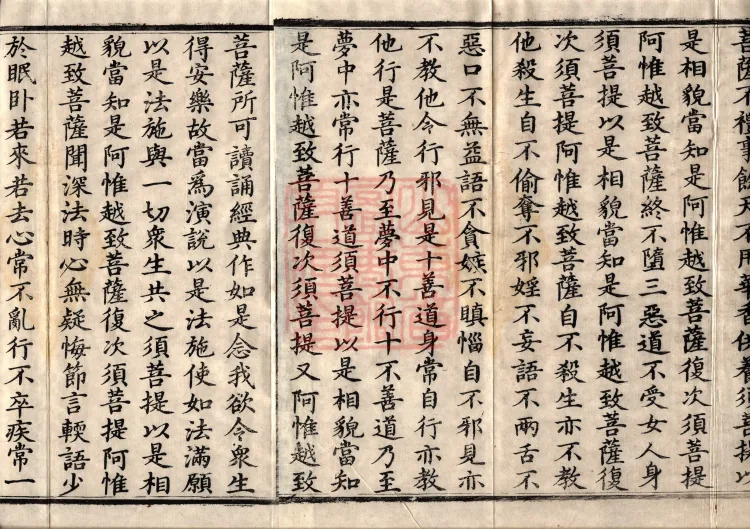 菩薩不禮事餘天不用華香供養須菩提以
是相貌當知是阿惟越致菩薩復次須菩提
阿惟越致菩薩終不墮三惡道不受女人身
須菩提以是相貌當知是阿惟越致菩薩復
次須菩提阿惟越致菩薩自不殺生亦不教
他殺生自不偷奪不邪婬不妄語不兩舌不
惡口不無益語不貪嫉不瞋惱自不邪見亦
不教他令行邪見是十善道身常自行亦教
他行是菩薩乃至夢中不行十不善道乃至
夢中亦常行十善道須菩提以是相貌當知
是阿惟越致菩薩復次須菩提又阿惟越致
菩薩所可讀誦經典作如是念我欲令衆生
得安樂故當爲演說以是法施使如法滿願
以是法施與一切衆生共之須菩提以是相
貌當知是阿惟越致菩薩復次須菩提阿惟
越致菩薩聞深法時心無疑悔節言輭語少
於眠卧若來若去心常不亂行不卒疾常一